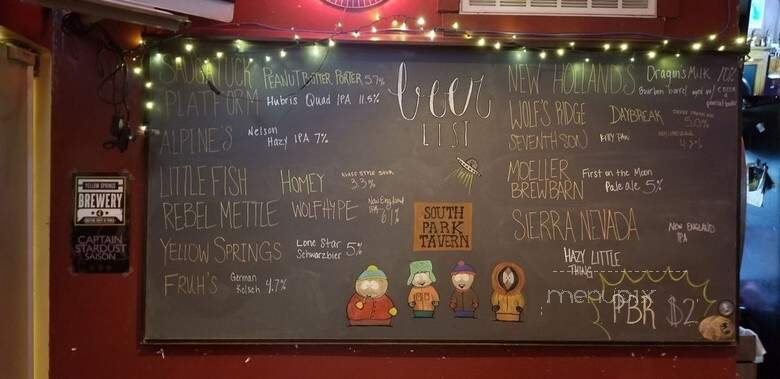 SAUGATUCK PEANUT BUTTER PORTER 5.7%
PLATFORM Hubris Quad IPA 11.5%
ALPINE'S Nelson
Hazy IPA 7%
LITTLE FISH HOMEY
3.3%
REBEL METTLE WOLF HYPE New England
IPA 6.1%
YELLOW SPRINGS Lone Star
Schwarzbier 5%
FRUH'S German
Kolsch 4.7%
beer
LIST
SOUTH
PARK
TAVERN
NEW HOLLANDS Dragons Milk 10%
Bourbon barrel aged w/
WOLF'S RIDGE DAYBREAK
5.0%
SEVENTH SON
MOELLER
BREWBARN First on the Moon
Pale ale 5%
SIERRA NEVADA NEW ENGLAND
IPA
HAZY LITTLE
THING
menupix
PBR $2
YELLOW SPRINGS
BREWERY
CAPTAIN
STARDUST
SAISON